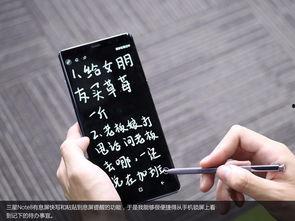 1.给女朋
友买草莓
一斤
2.老板娘打
电话问老板
去哪,还
说在加班
三星Note8有息屏快写和粘贴到息屏提醒的功能,于是我能够很便捷得从手机锁屏上看
到记下的待办事宜。